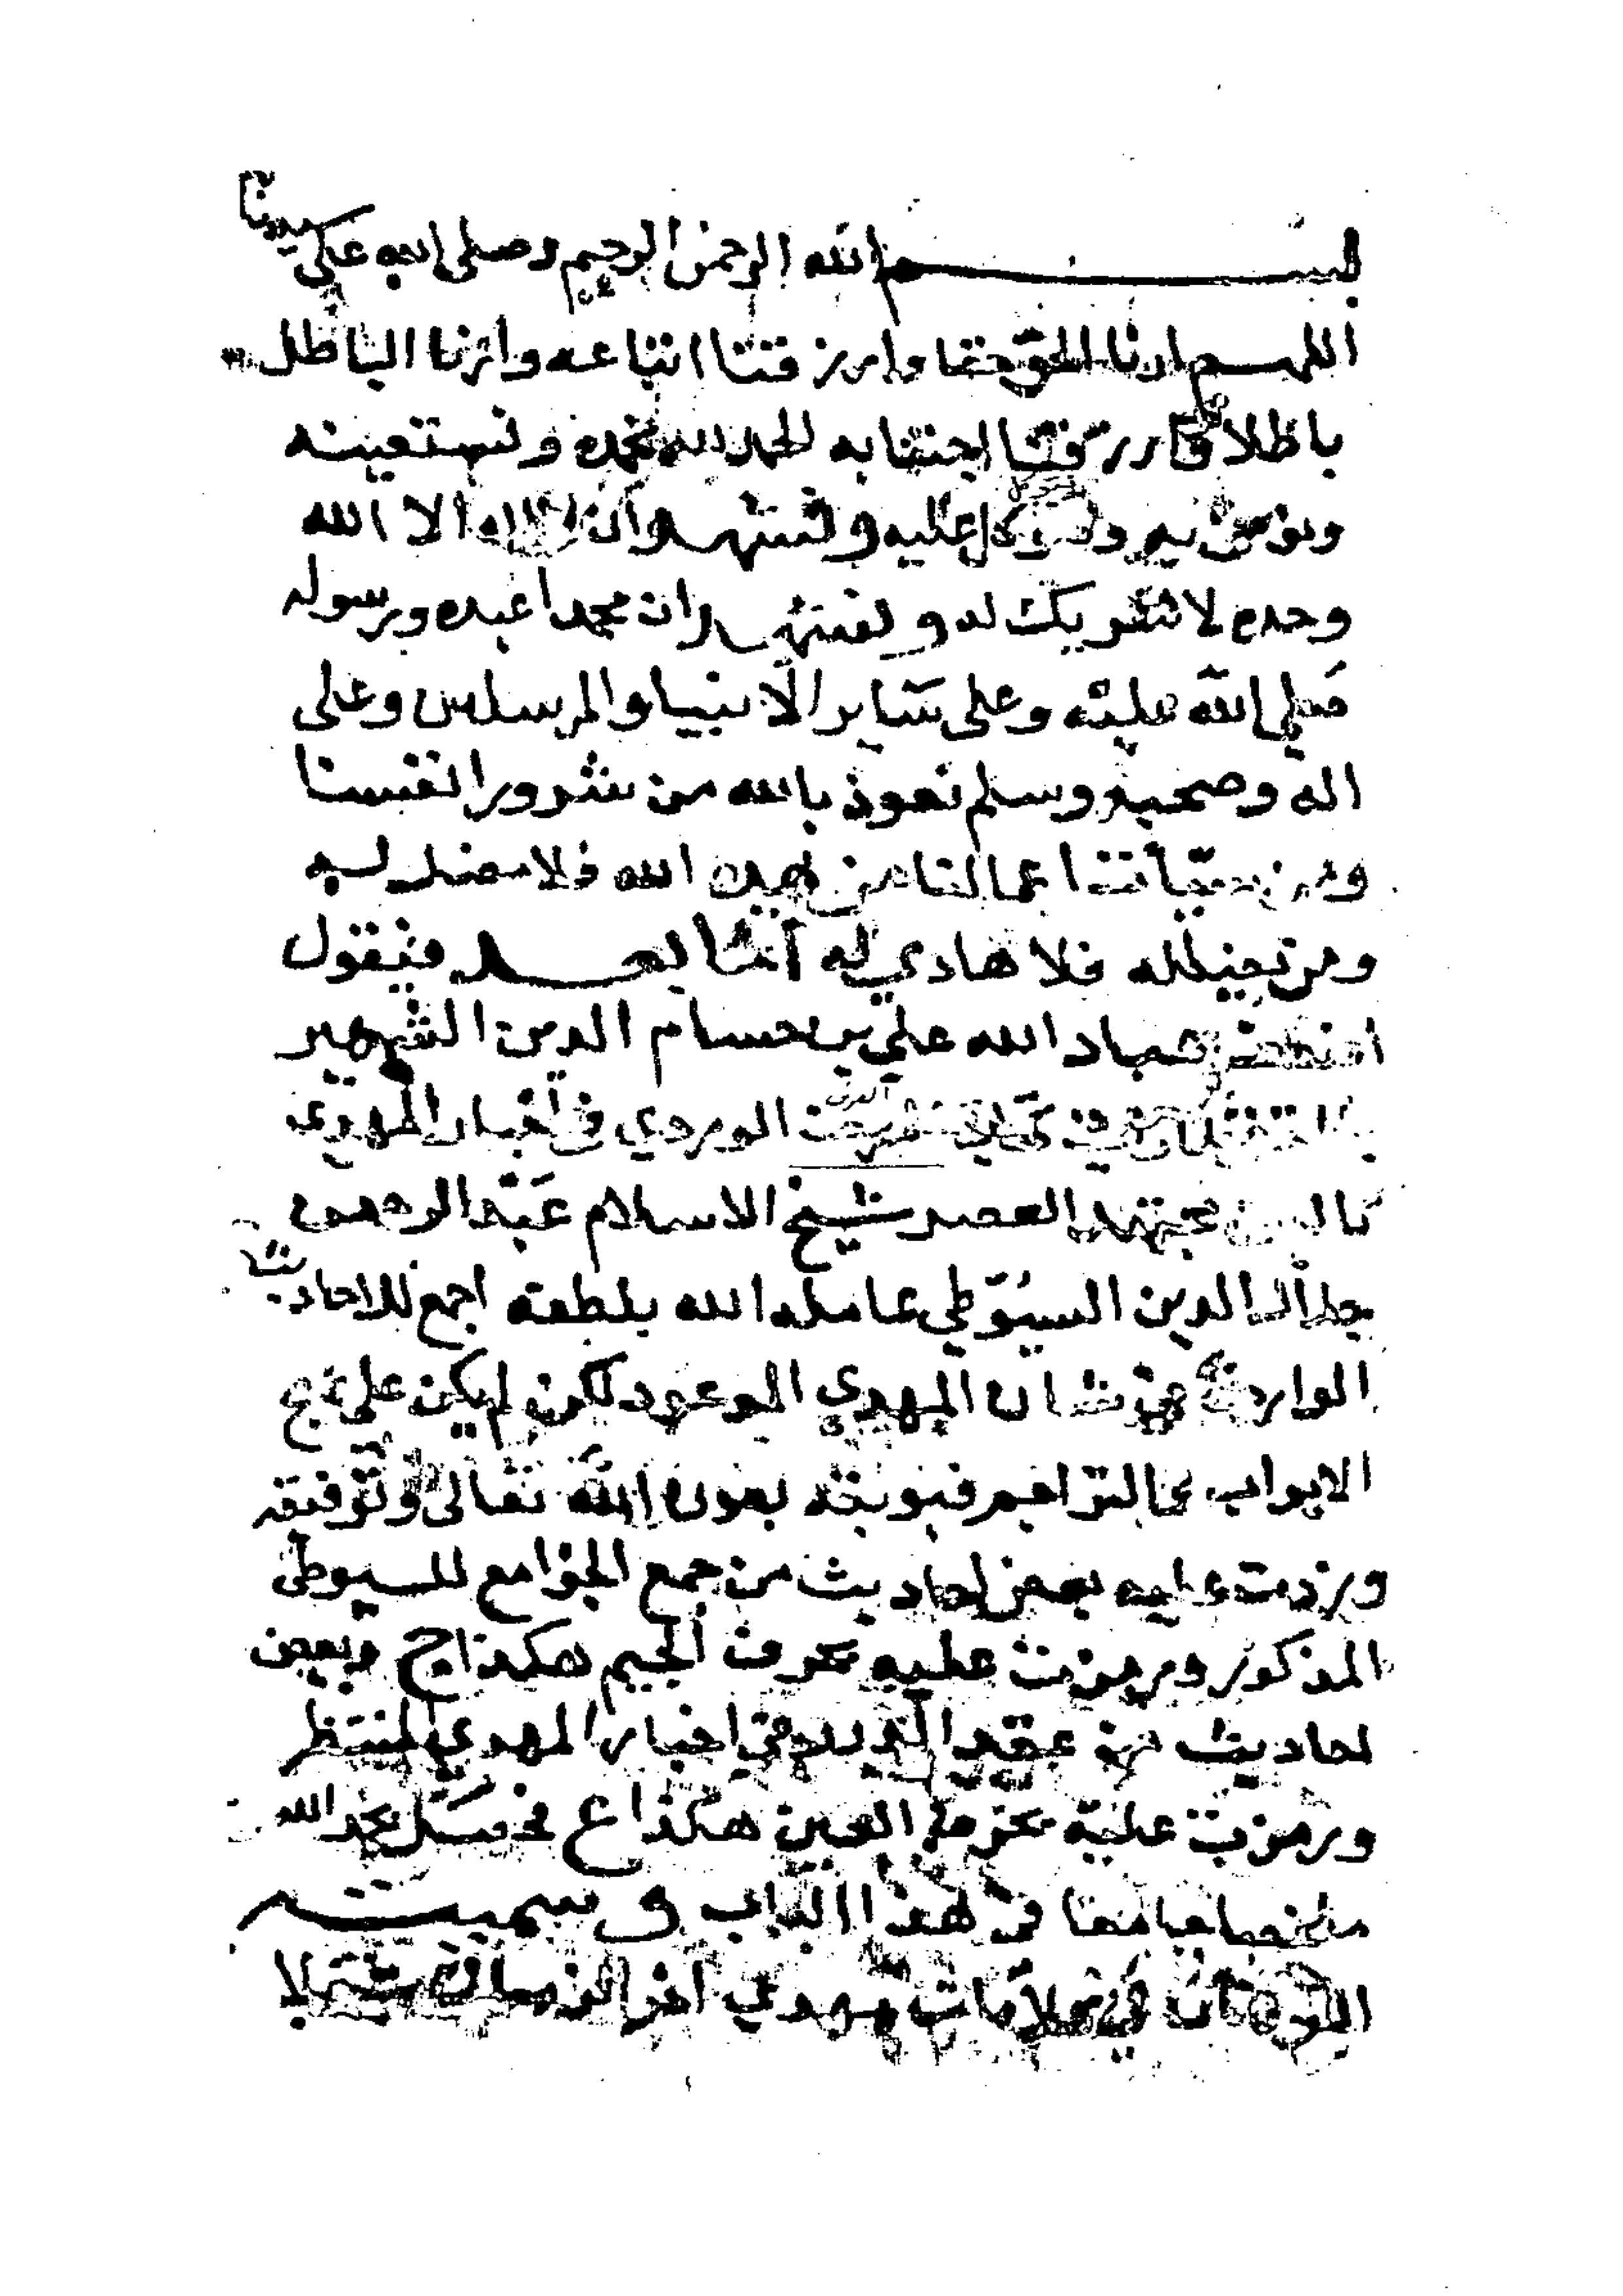 بسم الله الرحمن الرحيم وصلى الله على سيدنا
اللهم ارنا الحق حقا وارزقنا اتباعه وارنا الباطل
باطلا وارزقنا اجتنابه الحمد لله نحمده ونستعينه
ونومن به ونتوكل عليه ونشهد ان لا اله الا الله
وحده لا شريك له ونشهد ان محمدا عبده ورسوله
صلى الله عليه وعلى ساير الانبيا والمرسلين وعلى
اله وصحبه وسلم نعوذ بالله من شرور انفسنا
ومن سيأت اعمالنا من يهده الله فلا مضل له
ومن يضلله فلا هادي له اما بعد فيقول
عباد الله علي بن حسام الدين الشهير
الوردي في اخبار المهدي
مجتهد العصر شيخ الاسلام عبد الرحمن
جلال الدين السيوطي عامله الله بلطفه اجمع للاحاديث
الواردة في شان المهدي الموعود لكن لم يكن على نهج
الابواب والتراجم فبوبته بعون الله تعالى وتوفيقه
وزدت عليه بعض احاديث من جمع الجوامع للسيوطي
المذكور ورمزت عليه بحرف الجيم هكذا ج وبعض
احاديث من عقد الدرر في اخبار المهدي المنتظر
ورمزت عليه بحرف العين هكذا ع فحصل بحمد الله
ملخصا جامعا في هذا الباب وسميته
البرهان في علامات مهدي اخر الزمان